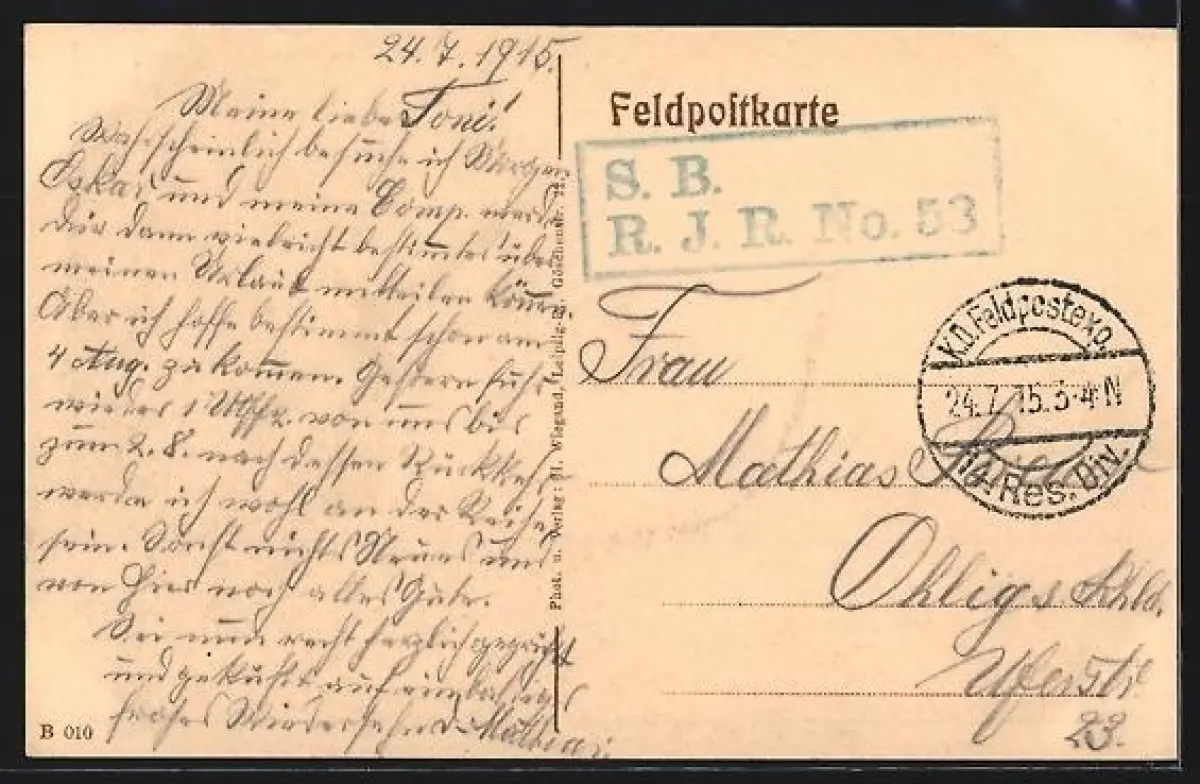 24.7.1915.
Meine liebe Toni!
Wahrscheinlich besuche ich Morgen
Oskar und meine Comp. werde
dir dann vielleicht bestimmtes über
meinen Urlaub mitteilen können.
Aber ich hoffe bestimmt schon am
4 Aug. zu kommen. Gestern fuhr
wieder 1 Uffz. von uns bis
zum 2.8. nach dessen Rückkehr
werde ich wohl an der Reihe
sein. Sonst nichts Neues und
von hier noch alles Gute.
Sei nun recht herzlich gegrüßt
und geküßt auf ein baldiges
frohes Wiedersehn d. Mathias
B 010
Phot. u. Verlag: H. Wiegand, Leipzig
Feldpostkarte
S. B.
R. J. R. No. 53
K.D. Feldpostexp.
24.7.15.3-4N
14. Res. Div.
Frau
Mathias
Ohligs Rhld.
Uferstr.
23.